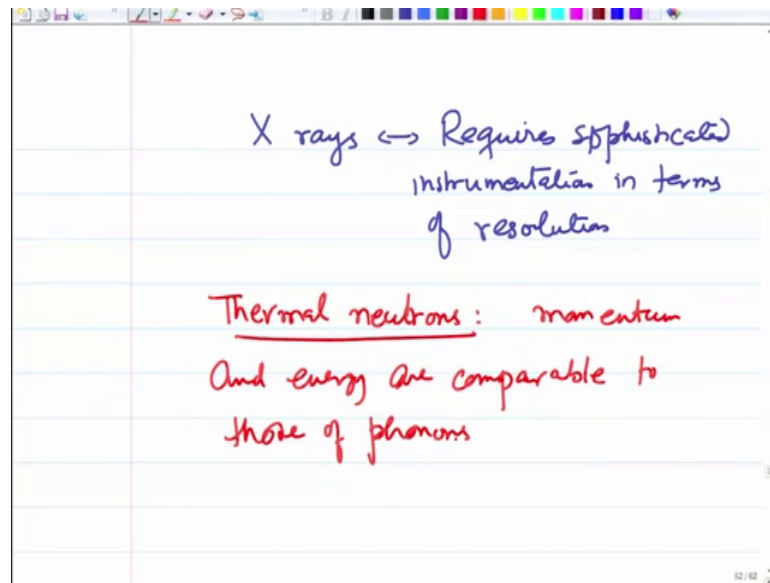 X rays ↔ Requires sophisticated
instrumentation in terms
of resolution
Thermal neutrons: momentum
And energy are comparable to
those of phonons
52/62